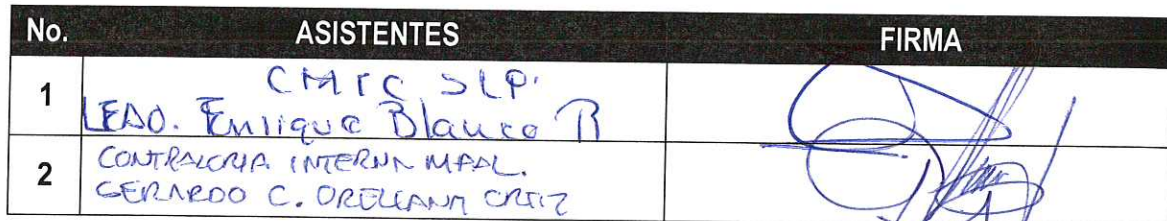 No. ASISTENTES FIRMA
1 CMIC SLP.
Enrique Blanco
2 CONTRALORIA INTERNA MPAL.
GERARDO C. ORELLANA ORTIZ